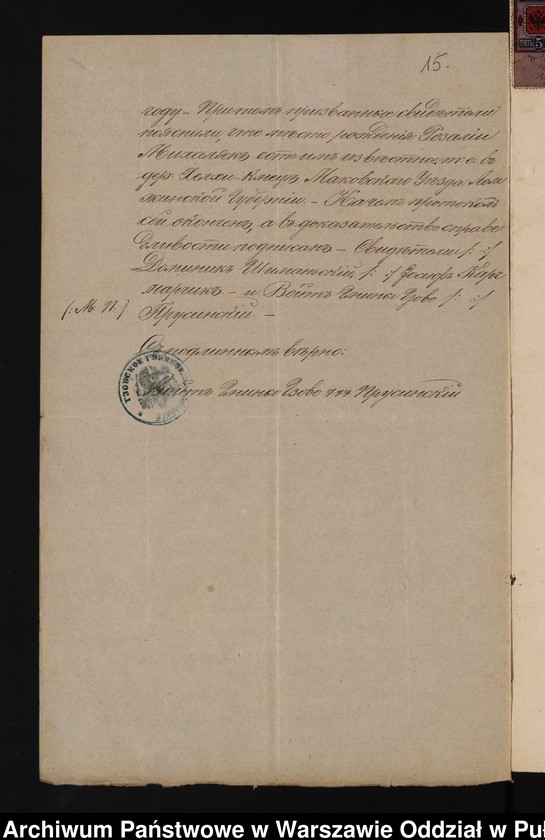 15.
году – Притомъ призванные свидѣтели
пояснили, что мѣсто рожденія Розаліи
Михалякъ есть имъ извѣстно, т. е. въ
дер. Хелхи-Клецъ Маковскаго Уѣзда Лом-
жинской Губерніи. – На чемъ протоколъ
сей оконченъ, а въ доказательство справе-
дливости подписанъ – Свидѣтели /:-:/
Доминикъ Шиматьскій, /:-:/ Іосифъ Кар
марчикъ – и Войтъ Гмина Гзово /:-:/
(: М. П. :) Прусинскій. –
Съ подлиннымъ вѣрно:
Войтъ Гмина Гзово Прусинскій
ГЗОВСКОЕ ГМИННОЕ
Archiwum Państwowe w Warszawie Oddział w Puł